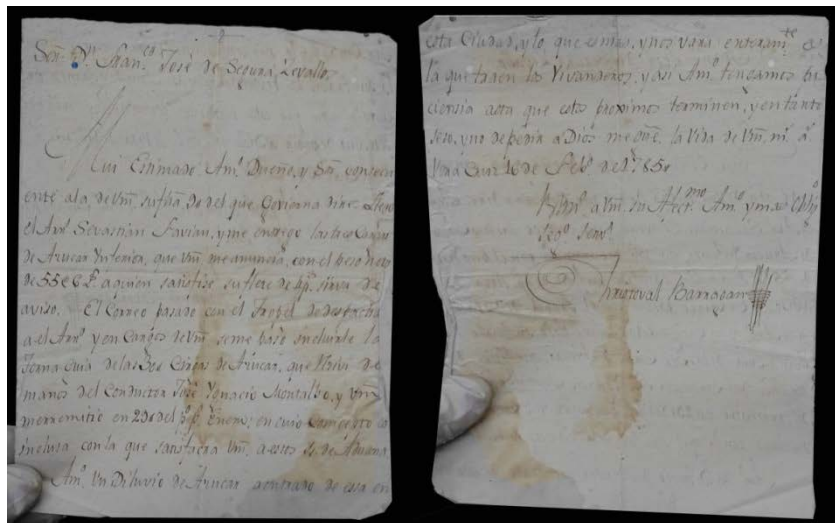 Señ.r D.n Fran.co José de Segura Zevallos
Mui Estimado Am.o Dueño, y Señ.r consequ
ente ala de Vm. su fha. de del que Govierna dire: Llego
el Arr.o Sevastian Favian, y me entrego las tres Cargas
de Azucar Inferior, que Vm me anuncia, con el peso neto
de 55 @ 6 l. a quien satisfise su flete de sirva de
aviso. El Correo pasado con el tropel de despacha
a el Arr.o y on Cargos de Vm se me paso incluirle la
Torna Guia de las Dos Cargas de Azucar, que Recivi de
manos del Conductor José Ygnacio Montalbo, y Vm
me rremitio en 29 del p.p. Enero; en cuio Concepto la
incluia con la que satisfacra Vm. a estos S.s de Aduana
Am.o Un Diluvio de Azucar a entrado de esa en
esta Ciudad, y lo que es mas, y nos vara enteram.te es
la que traen los Vivanderos, y asi Am.o tengamos pa
ciensia asta que estos proximos terminen, y en tanto
seso, y no de pedir a Dios me gñe. la Vida de Vm. m.s a.s
16 de Feb.o de
B.L.M. a Vm. su Afect.mo Am.o y mas
seg.o serv.r
Christoval Barragan